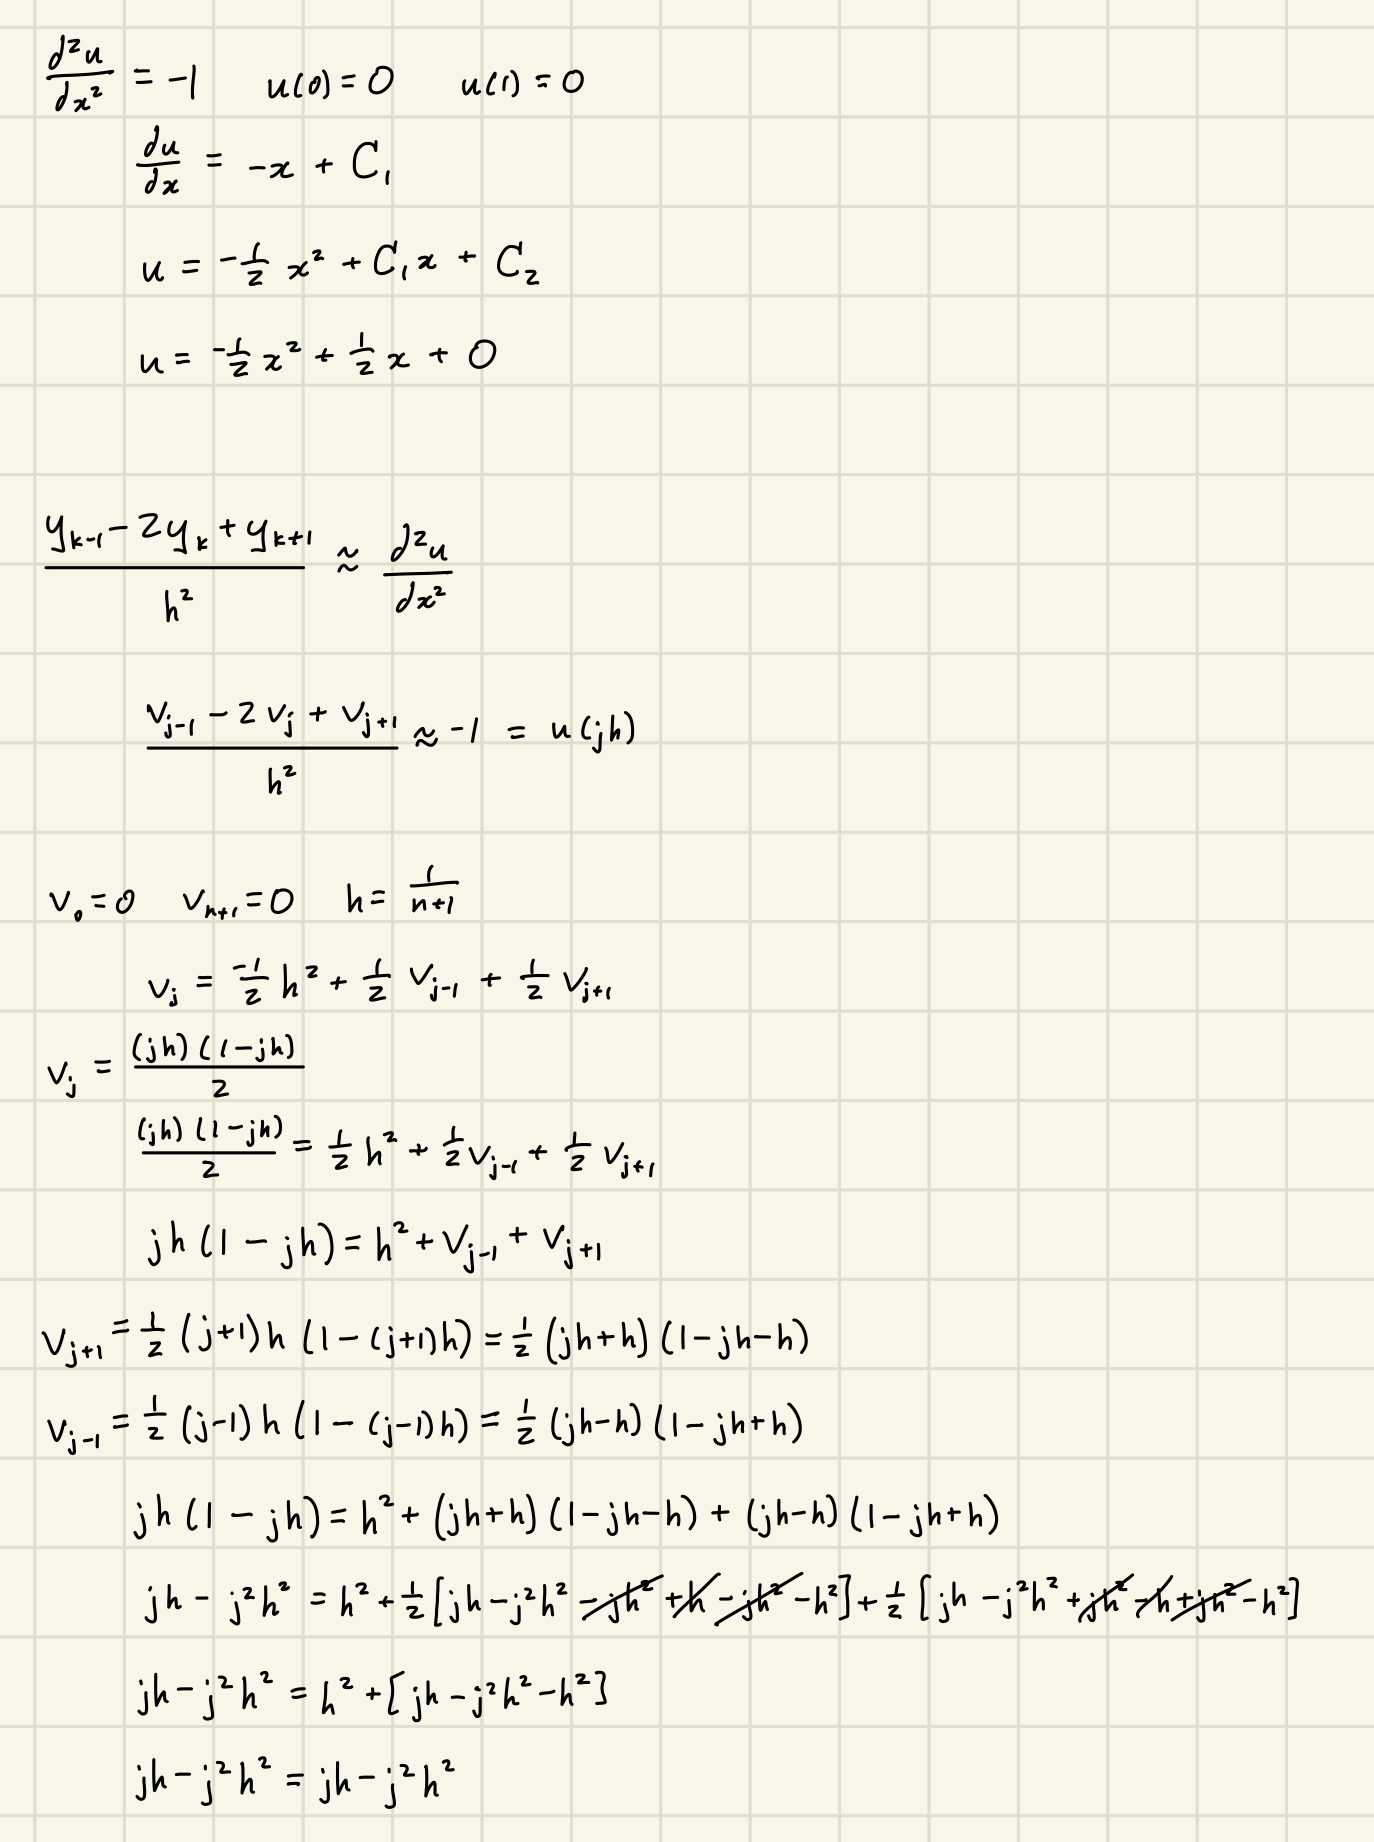 d²u/dx² = -1   u(0) = 0   u(1) = 0
du/dx = -x + C₁
u = -1/2 x² + C₁x + C₂
u = -1/2 x² + 1/2 x + 0
(y_{k-1} - 2y_k + y_{k+1})/h² ≈ d²u/dx²
(v_{j-1} - 2v_j + v_{j+1})/h² ≈ -1 = u(jh)
v₀ = 0   v_{n+1} = 0   h = 1/(n+1)
v_j = -1/2 h² + 1/2 v_{j-1} + 1/2 v_{j+1}
v_j = (jh)(1-jh)/2
(jh)(1-jh)/2 = 1/2 h² + 1/2 v_{j-1} + 1/2 v_{j+1}
jh(1 - jh) = h² + v_{j-1} + v_{j+1}
v_{j+1} = 1/2 (j+1)h (1 - (j+1)h) = 1/2 (jh+h)(1-jh-h)
v_{j-1} = 1/2 (j-1)h (1 - (j-1)h) = 1/2 (jh-h)(1-jh+h)
jh(1 - jh) = h² + (jh+h)(1-jh-h) + (jh-h)(1-jh+h)
jh - j²h² = h² + 1/2 [jh - j²h² - jh² + h - jh² - h²] + 1/2 [jh - j²h² + jh² - h + jh² - h²]
jh - j²h² = h² + [jh - j²h² - h²]
jh - j²h² = jh - j²h²